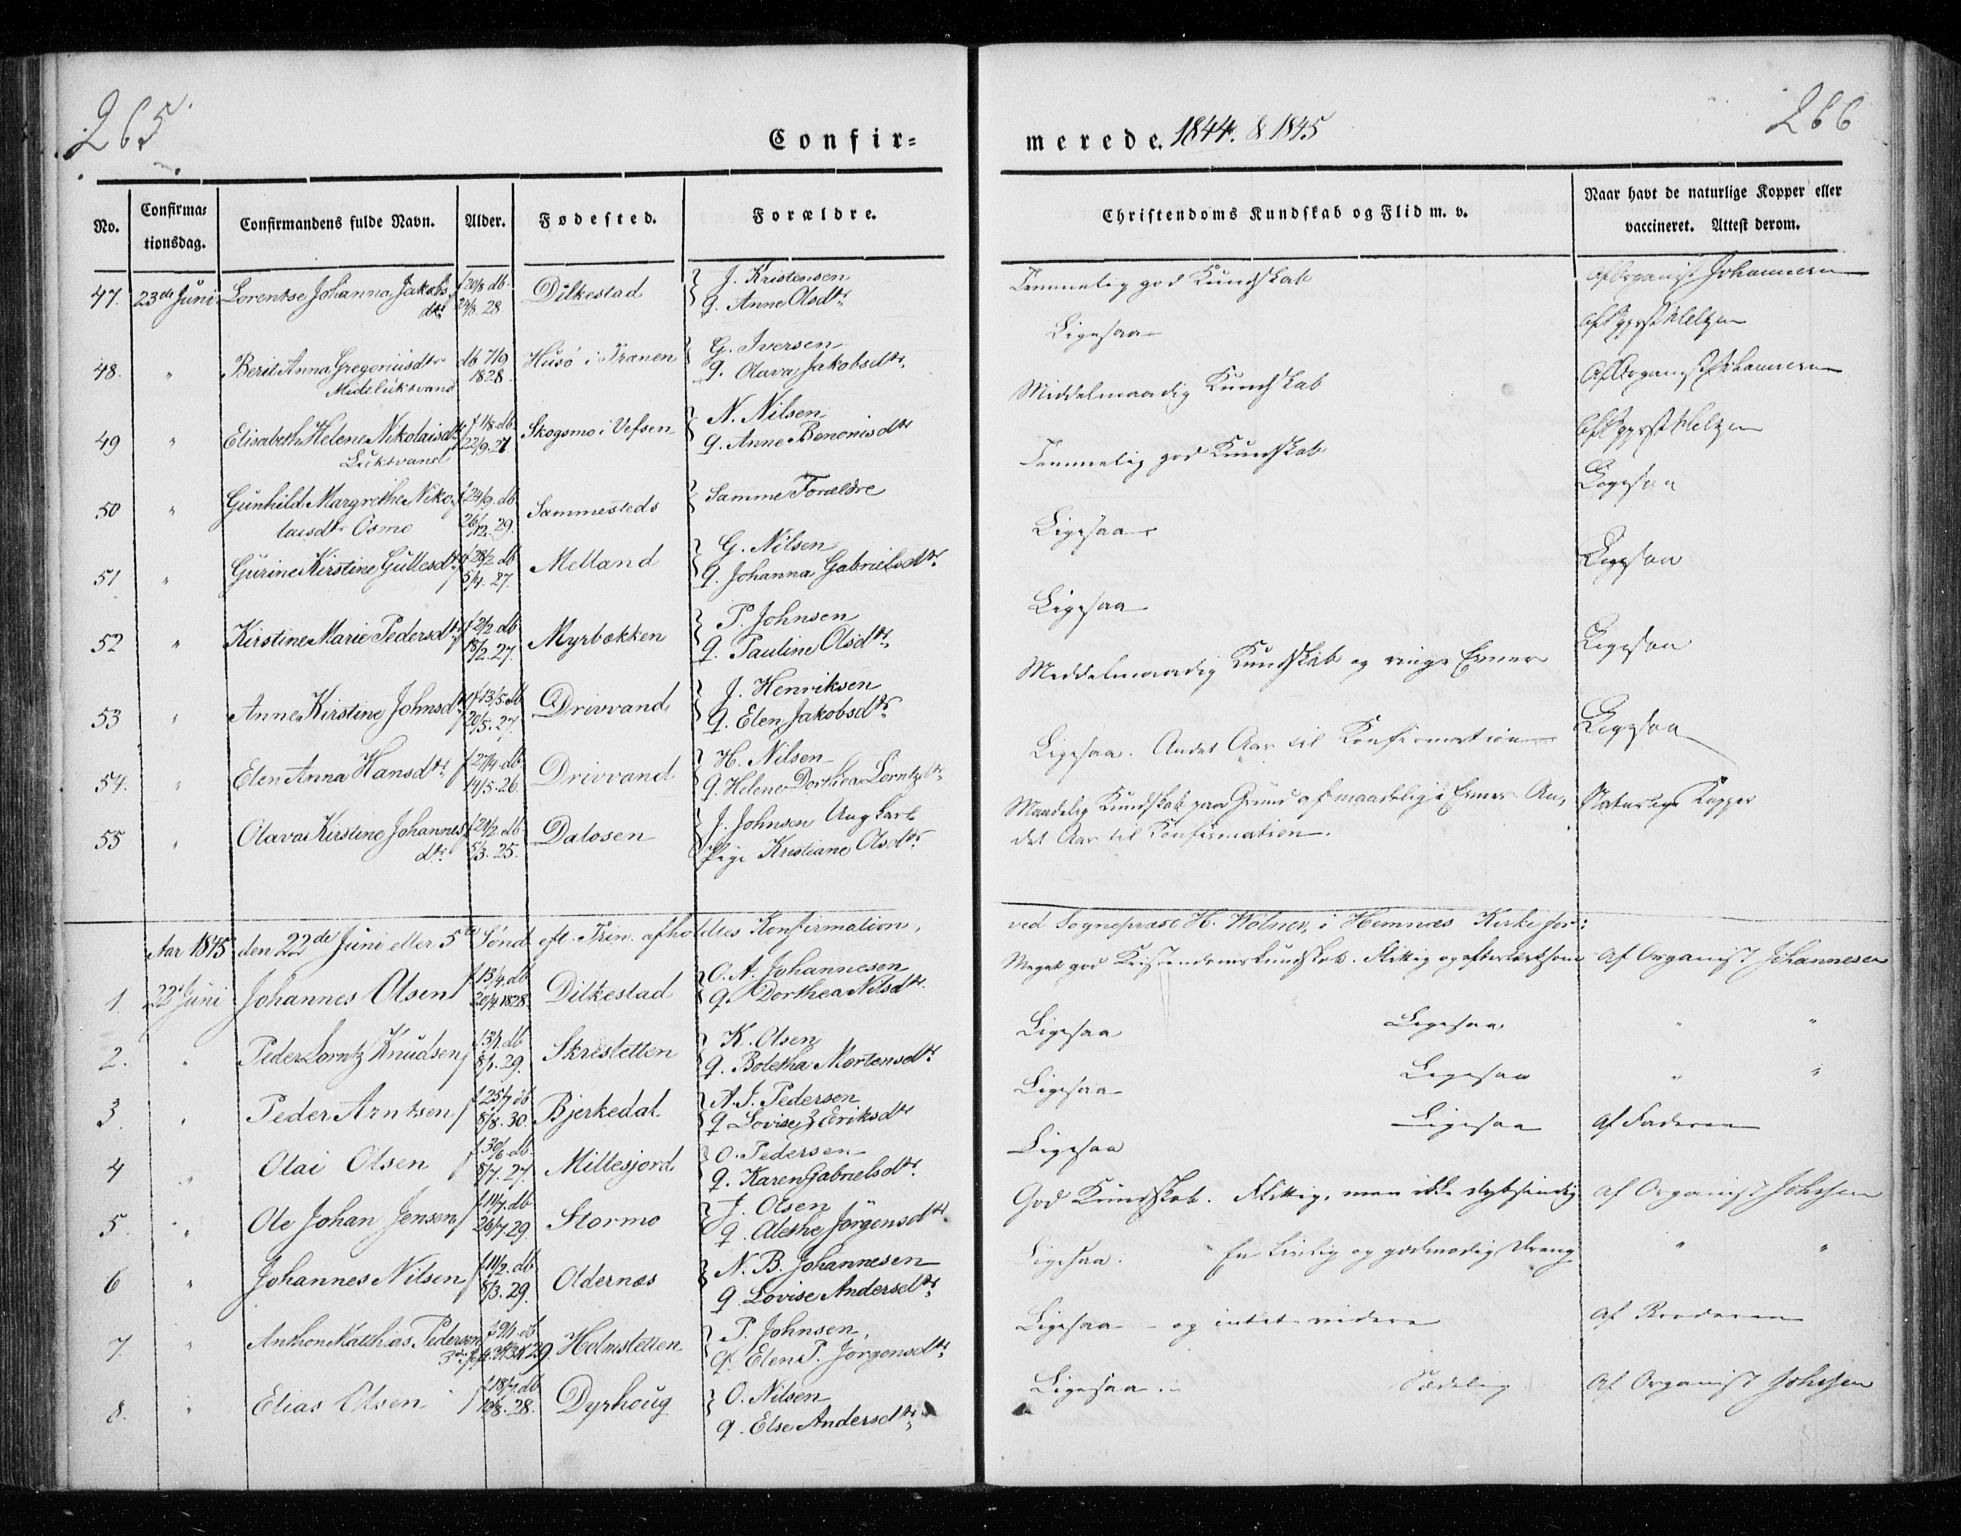 265
266
Confir=
merede. 1844. & 1845
No.
Confirma=
tionsdag.
Confirmandens fulde Navn.
Alder.
Fødested.
Forældre.
Christendoms Kundskab og Flid m. v.
Naar havt de naturlige Kopper eller
vaccineret. Attest derom.
47. 23de Juni Lorentse Johanna Jakobs
dtr f 20/3 db.
24/8. 28 Dilkestad J. Kristensen
q. Anne Olsdtr Temmelig god Kundskab Af Organist Johannesen
48. " Berit Anna Gregeriusdtr
Midtluktvand db 7/9
1828. Husö i Trænen G. Iversen
q. Olava Jakobsdtr. Ligesaa
49 " Elisabeth Helene Nikolaisdtr
Luktvand f 1/8. db.
22/9. 27 Skogsmo i Vefsen N. Nilsen
q. Anne Benonisdtr Middelmaadig Kundskab Af Organist Johannesen
50 " Gunhild Margrethe Niko
laisdtr Osmo f 24/9. db.
26/12. 29. Sammesteds Samme Forældre Temmelig god Kundskab
51 " Gurine Kirstine Gullesdtr f 28/2. db
5/4. 27. Melland G. Nilsen
q. Johanna Gabrielsdtr. Ligesaa Ligesaa
52 " Kirstine Marie Pedersdtr f 2/2 db
18/2. 27. Myrbakken P. Johnsen
q. Pauline Olsdtr Ligesaa Ligesaa
53 " Anne Kirstine Johnsdtr f 13/5. db
20/5. 27. Drivvand J. Henriksen
q. Elen Jakobsdtr Middelmaadig Kundskab og ringe Evner Ligesaa
54. " Elen Anna Hansdtr f 27/4. db.
14/5. 26. Drivvand H. Nilsen
q. Helene Dorthea Lorntzdtr Ligesaa. Andet Aar til Konfirmation Ligesaa
55 " Olava Kirstine Johannes
dtr f 24/2. db.
5/3. 25. Dalosen J. Johnsen Ung Karl
Pige Kristiane Olsdtr Maadelig Kundskab paa Grund af maadelige Evner. An=
det Aar til Konfirmation. Naturlige Kopper
Aar 1845 den 22de Juni eller 5te Sönd. eft. Trin. afholdtes Konfirmation,
ved Sognepræst H. Wolner, i Hemnæs Kirke for:
1. 22de Juni Johannes Olsen f 13/4. db.
20/4 1828. Dilkestad O. A. Johannesen
q. Dorthea Nilsdtr. Meget god Kristendomskundskab. Flittig og eftertænksom Af Organist Johannesen
2. " Peder Lorntz Knudsen db
8/1. 29. Skresletten K. Olsen
q. Boletha Mortensdtr Ligesaa Ligesaa " "
3. " Peder Arntsen f 25/7 db
8/8. 30. Bjerkedal A. J. Pedersen
q. Lovise Eriksdtr Ligesaa Ligesaa " "
4 " Olai Olsen f 30/6 db.
8/7. 27. Millesjord O. Pedersen
q. Karen Gabrielsdtr. Ligesaa Ligesaa Af Faderen
5. " Ole Johan Jensen f 11/7. db
26/7. 29. Stormo J. Olsen
q. Alethe Jörgensdtr God Kundskab. Flittig, men ikke dybsindig af Organist Johnsen
6 " Johannes Nilsen f 11/2. db
8/3. 29. Oldernæs N. B. Johannesen
q. Lovise Andersdtr Ligesaa. En livlig og godmodig Dreng " "
7. " Anthon Matthias Pedersen f 9/1 db. Holmsletten P. Johnsen,
q. Elen P. Jörgensdtr Ligesaa - og intet videre
8. " Elias Olsen f 18/7. db
28. Dyrhoug O. Nilsen
q. Else Andersdtr Ligesaa. Sædelig Af Organist Johnsen